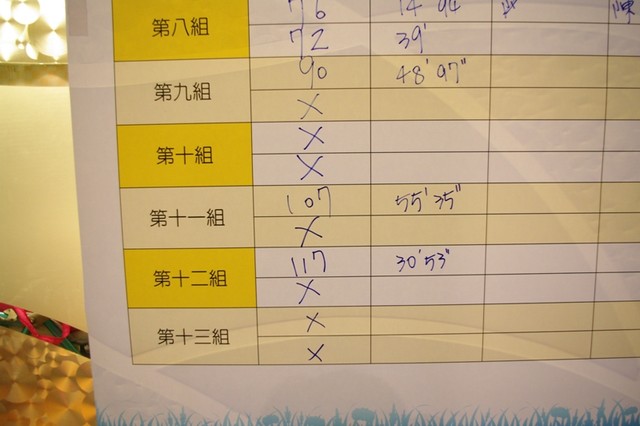 76 14'94
第八組
72 39'
90 48'97"
第九組
X
X
第十組
X
107 55'35"
第十一組
X
117 30'53"
第十二組
X
X
第十三組
X